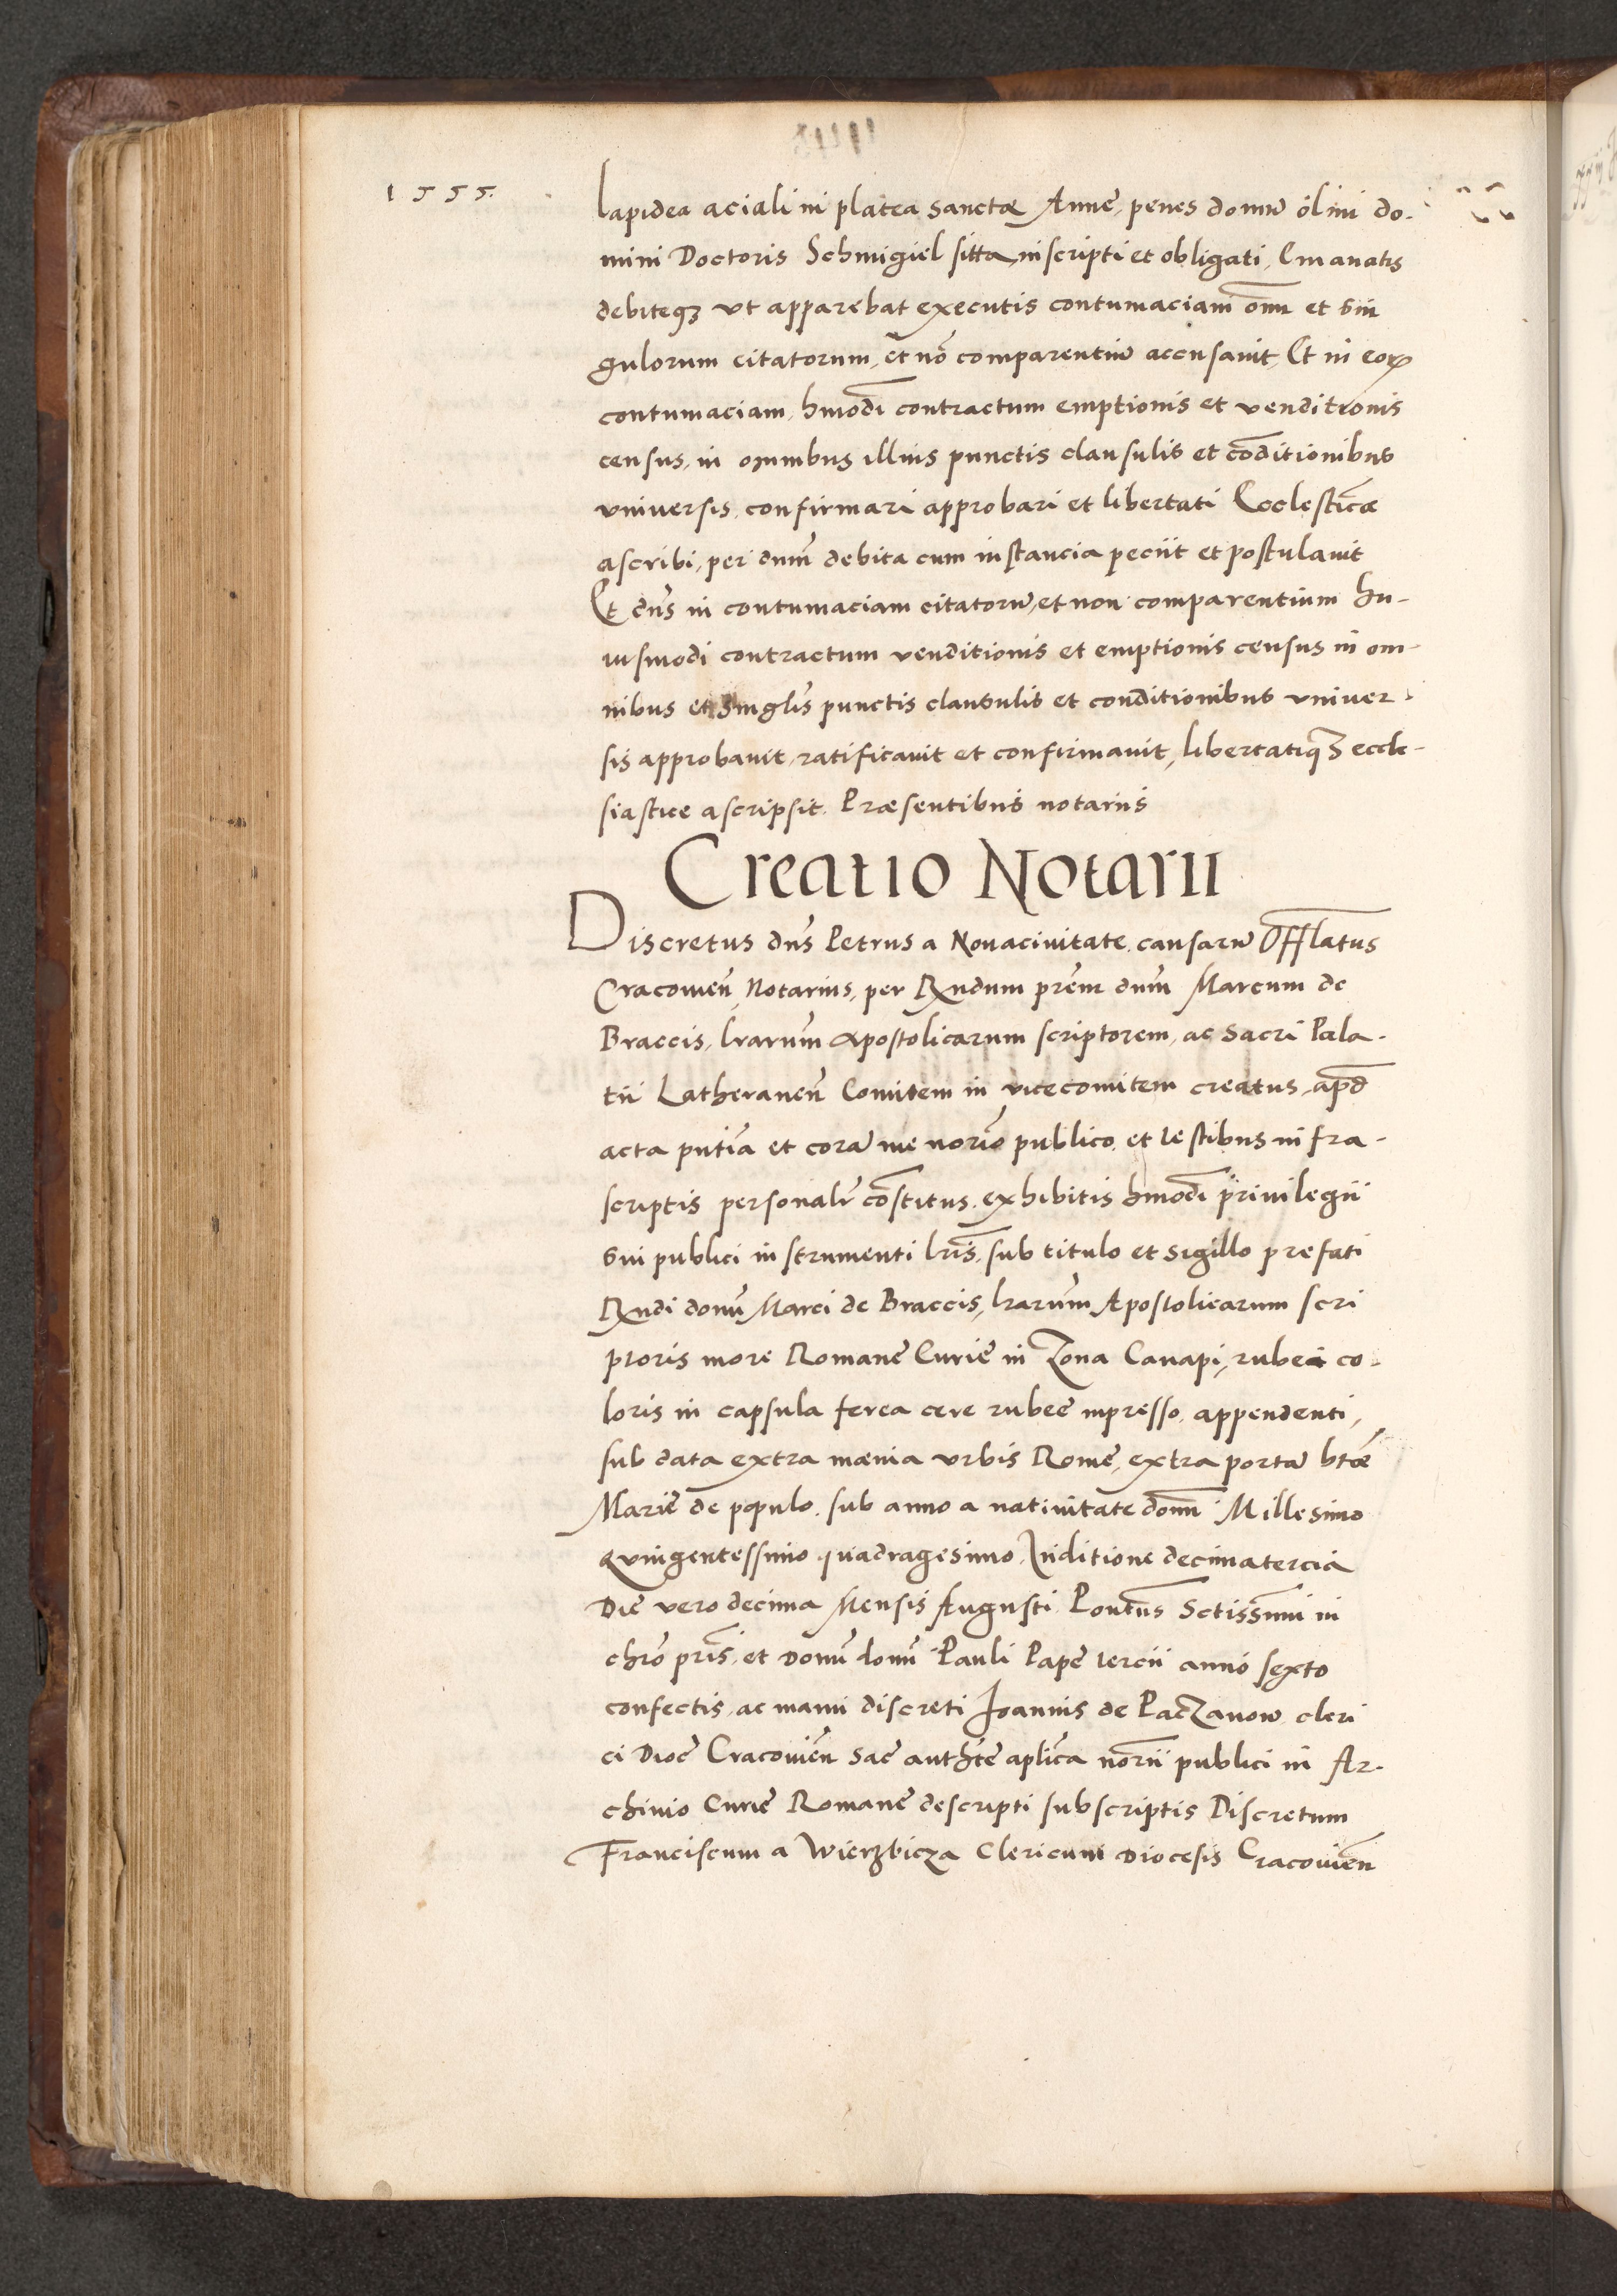 1555.
lapidea aciali in platea sanctæ Anne, penes domū olim do-
mini Doctoris Schmigiel sitta, inscripti et obligati, Emanatis
debiteqȝ vt apparebat executis contumaciam om̄ et sin
gulorum citatorum, et nō comparentiū accusauit, Et in eorꝝ
contumaciam, hmōdi contractum emptionis et venditionis
census, in omnibus illius punctis clausulis et cōditionibus
vniuersis, confirmari approbari et libertati Ecclesticæ
ascribi, per dnm̄ debita cum instancia peciit et postulauit
Et dns̄ in contumaciam citatorū, et non comparentium hu-
iusmodi contractum venditionis et emptionis census in om-
nibus et singlis̄ punctis clausulis et conditionibus vniuer-
sis approbauit, ratificauit et confirmauit, libertatiqȝ eccle-
siastice ascripsit. Præsentibus notariis
Creatio Notarii
Discretus dns̄ Petrus a Nouaciuitate, causarū Offlatus
Cracouien̄ Notarius, per Rndum prēm dnm̄ Marcum de
Braccis, lrarum̄ apostolicarum scriptorem, ac Sacri Pala-
tii Latheranen̄ Comitem in vicecomitem creatus, apd̄
acta pntīa et corā me norīo publico, et testibus infra-
scriptis personalr̄ cōstitus, exhibitis hmōdi priuilegii
sui publici instrumenti lrīs, sub titulo et sigillo prefati
Rndi domī Marci de Braccis, lrarum̄ Apostolicarum scri
ptoris more Romane Curie in Zona Canapi, rubei co-
loris in capsula ferea cere rubee inpresso, appendenti,
sub data extra mænia vrbis Rome, extra portā btǣ
Marie de populo, sub anno a natiuitate domī Millesimo
Quingentessimo quadragesimo, Inditione decimatercia
Die vero decima Mensis Augusti, Pontus̄ Sctissimi in
chrō prīs, et Domī domī Pauli Pape tercii anno sexto
confectis, ac manu discreti Joannis de Paczanow cleri
ci Dioc̄ Cracouien̄ Sac̄ authtē aplīca norīi publici in Ar-
chiuio Curie Romane descripti subscriptis Discretum
Franciscum a Wierzbicza Clericum Diocesis Cracouien̄